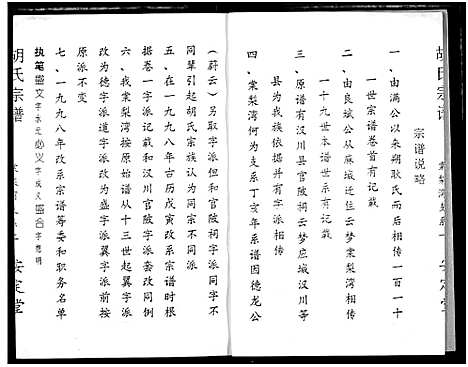 胡氏宗谱
安定堂
宗谱说略
一、由满公以来朔耿氏而后相传一百一十
一世宗谱卷首有记载
二、由良斌公从麻城迁住云梦棠梨湾相传
一十九世本谱世系有记载
三、原谱有汉川县官陂祠云梦应城汉川等
县为我族依据并有字派相传
四、棠梨湾何为支系丁亥年系谱因德龙公
(蔚云)另取字派但和官陂祠字派同字不
同辈引起胡氏宗族说不同宗不同派
五、在一九九八年古历戊寅改系宗谱时根
据卷一字派记载和汉川官陂字派套改同例
六、我棠梨湾按原始谱从十三世起翼字派
改为德字派道字派改为盛字派翼字派前按
原派不变
七、一九九八年改系宗谱筹委和职务名单
执笔
胡氏宗谱
安定堂